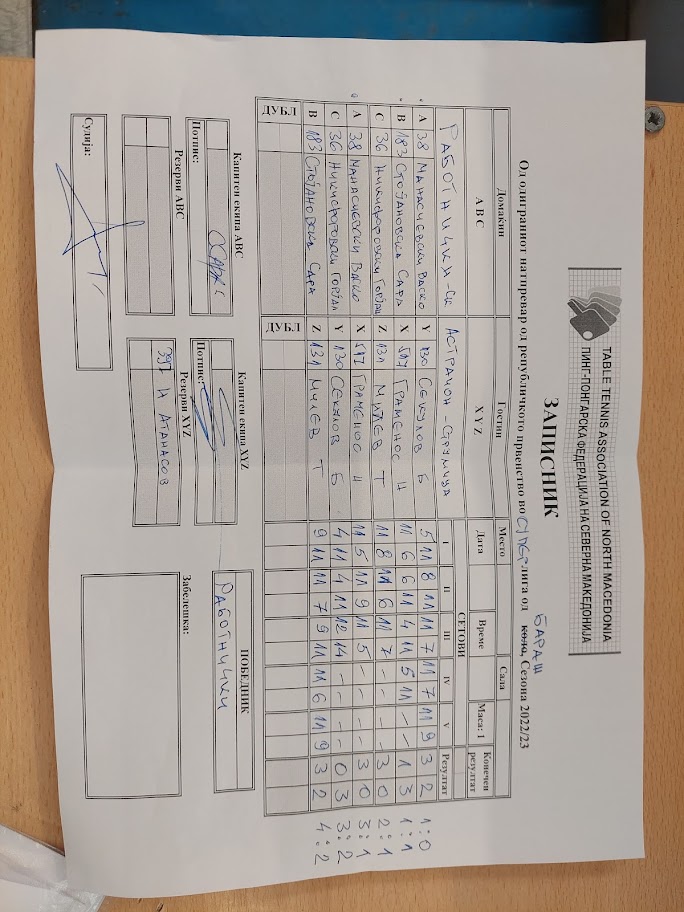 TABLE TENNIS ASSOCIATION OF NORTH MACEDONIA
ПИНГ-ПОНГАРСКА ФЕДЕРАЦИЈА НА СЕВЕРНА МАКЕДОНИЈА
ЗАПИСНИК
БАРАЖ
Од одиграниот натпревар од републичкото првенство во СУПЕР лига од кола, Сезона 2022/23
Домаќин Гостин Место Сала Конечен резултат
А В С X Y Z Дата Време Маса: 1
РАБОТНИЧКИ-СК АСТРАИОН СТРУМИЦА СЕТОВИ
I II III IV V Резултат
A 38 МАНАСИЕВСКИ ВАСКО Y 130 СЕКУЛОВ Б 5 11 8 11 11 7 11 7 11 9 3 2 1:0
B 183 СТОЈАНОВСКА САРА X 517 ГРАМЕНОС Н 11 6 6 11 4 11 5 11 - - 1 3 1:1
C 36 НИКИФОРОВСКИ ГОРЈАН Z 131 МИЛЕВ Т 11 8 11 6 11 7 - - - - 3 0 2:1
A 38 МАНАСИЕВСКИ ВАСКО X 517 ГРАМЕНОС Н 11 5 11 9 11 5 - - - - 3 0 3:1
C 36 НИКИФОРОВСКИ ГОРЈАН Y 130 СЕКУЛОВ Б 4 11 4 11 12 14 - - - - 0 3 3:2
B 183 СТОЈАНОВСКА САРА Z 131 МИЛЕВ Т 9 11 11 7 9 11 11 6 11 9 3 2 4:2
ДУБЛ ДУБЛ
Капитен екипа ABC Капитен екипа XYZ ПОБЕДНИК
Потпис: Потпис: РАБОТНИЧКИ
Резерви ABC Резерви XYZ Забелешка:
397 Н АТАНАСОВ
Судија: